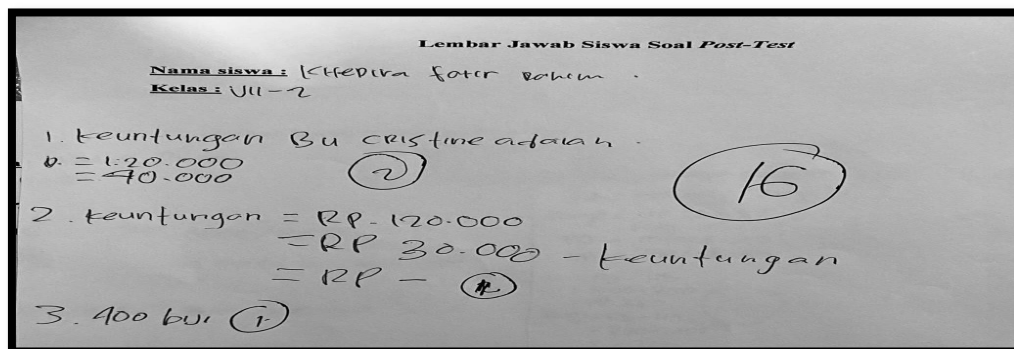 Lembar Jawab Siswa Soal Post-Test
Nama siswa : Khedira Fatir Rahim .
Kelas : VII-2
1. keuntungan Bu Cristine adalah .
= 120.000
= 40.000
2
16
2. keuntungan = RP. 120.000
= RP 30.000 - keuntungan
= RP -
3. 400 bui 1